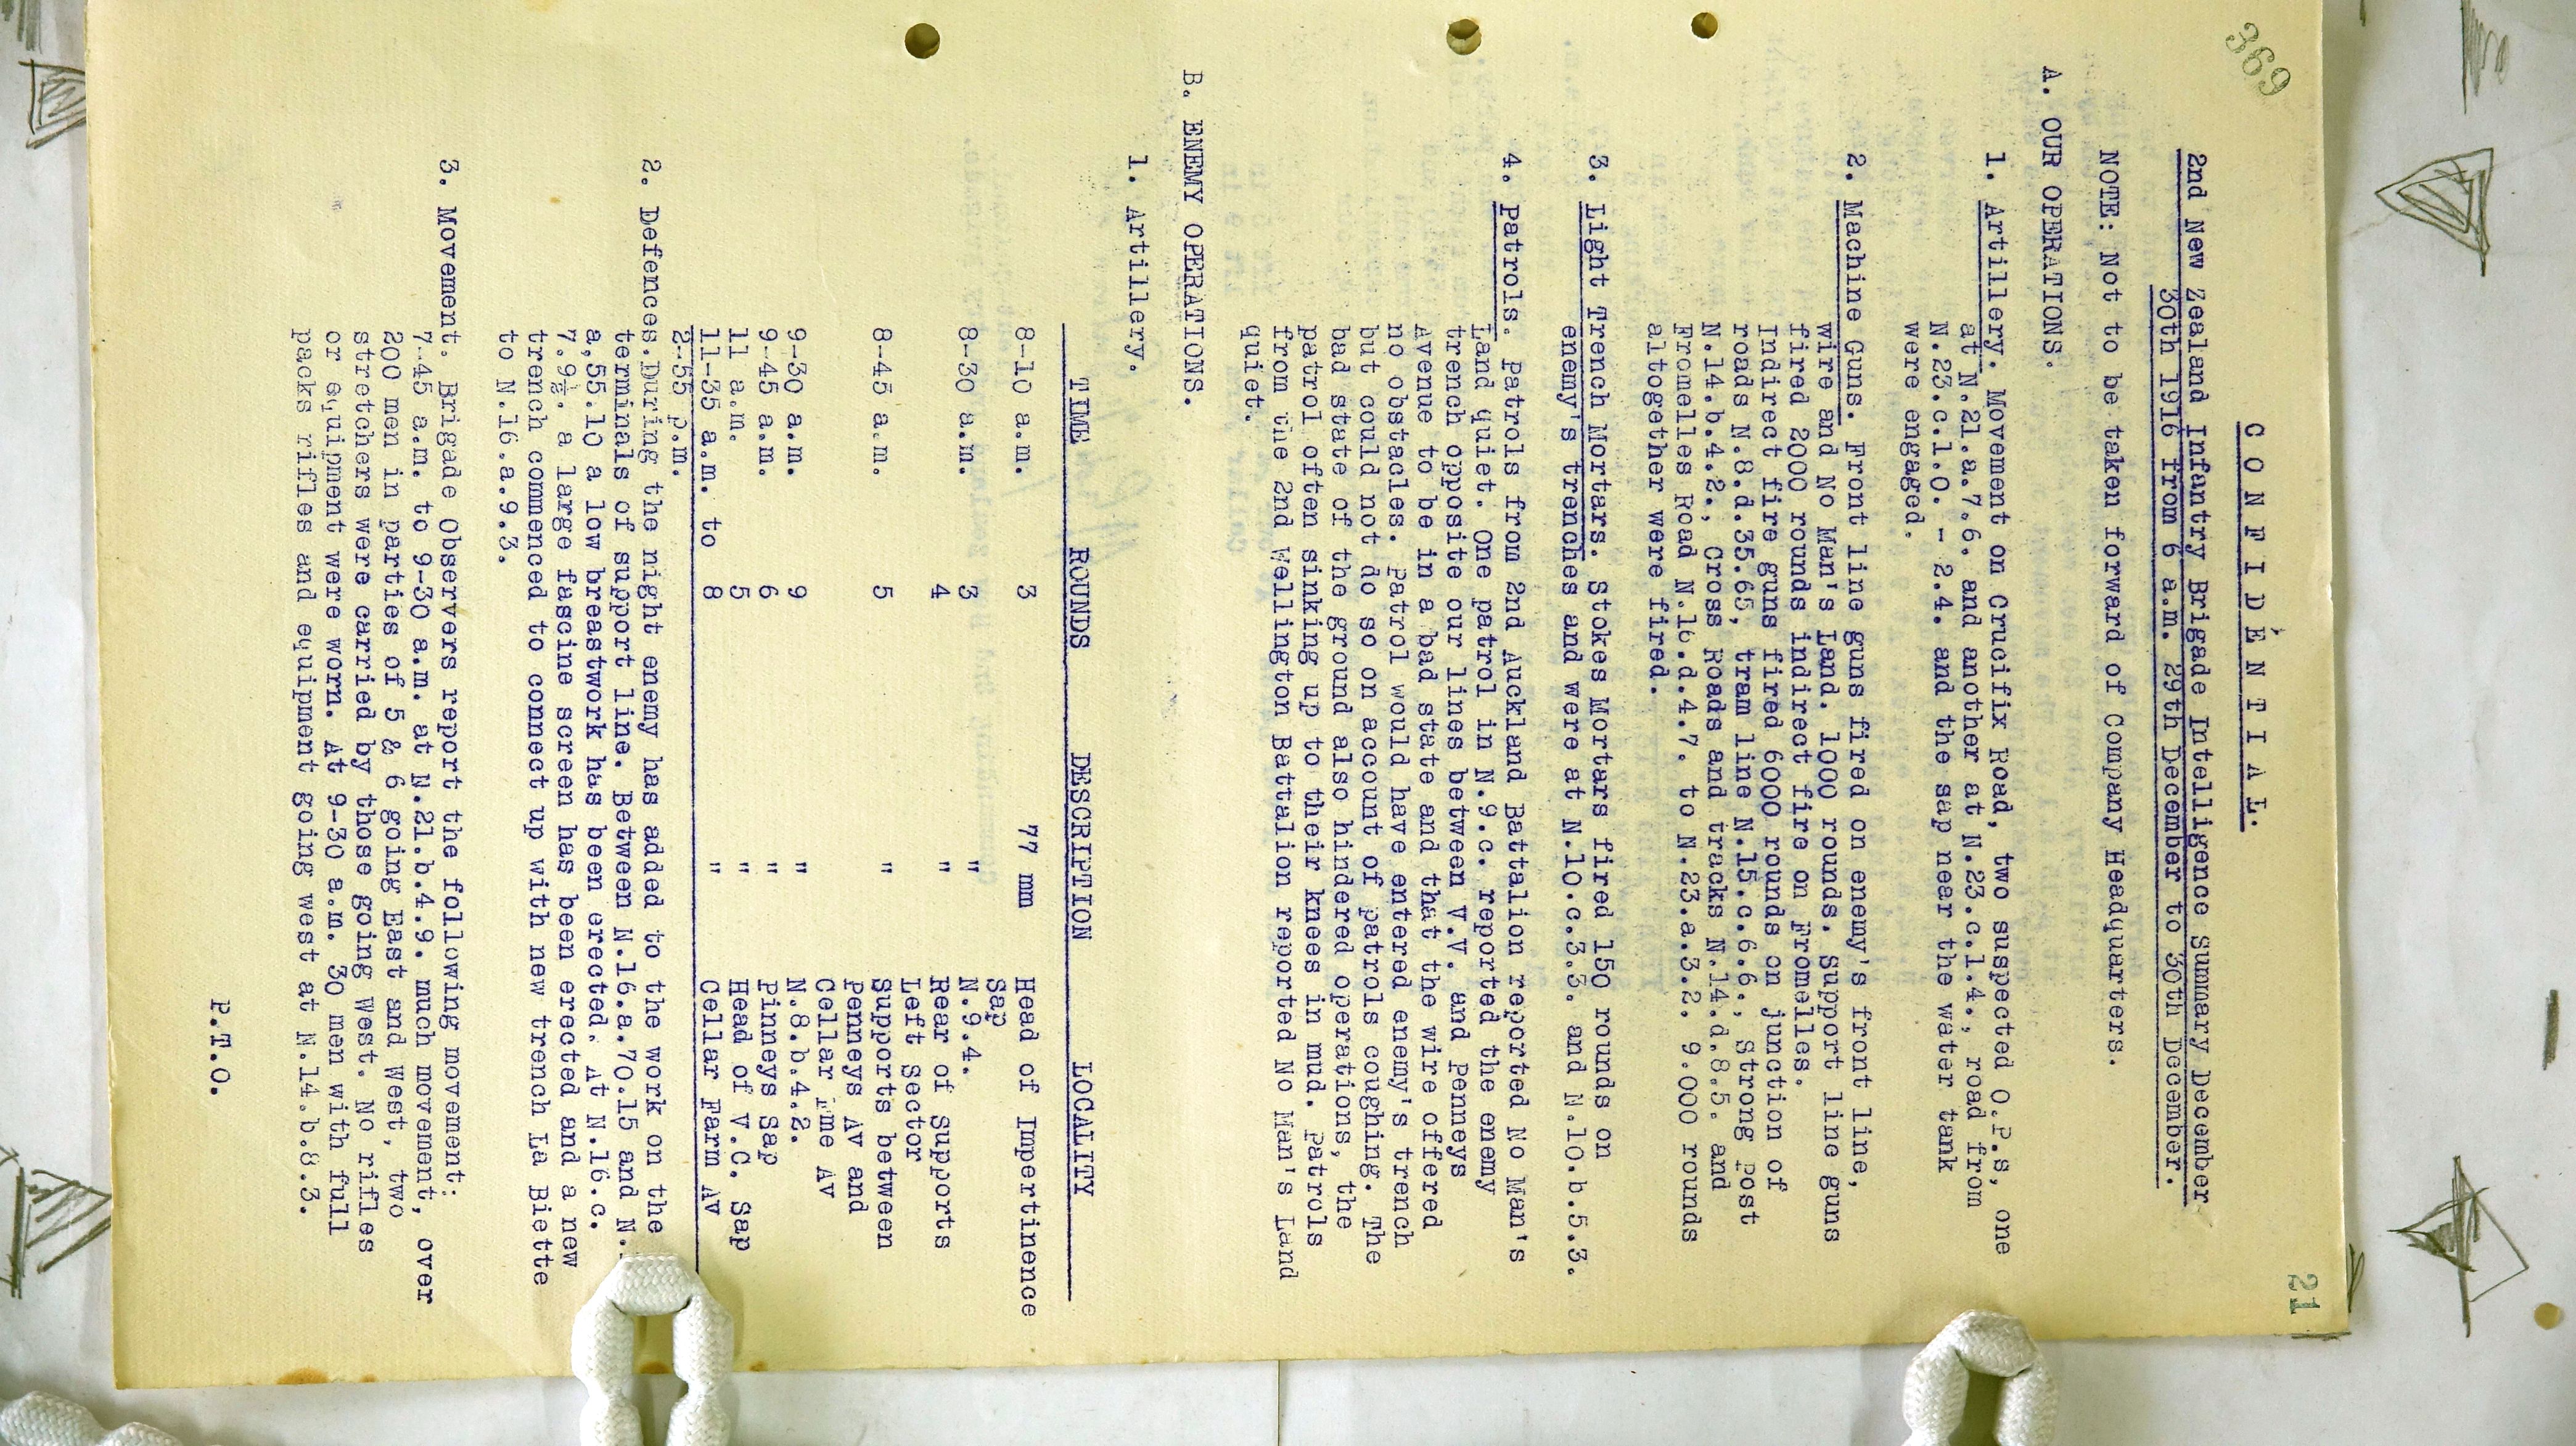 369
21
C O N F I D E N T I A L.
2nd New Zealand Infantry Brigade Intelligence Summary December
30th 1916 from 6 a.m. 29th December to 30th December.
NOTE: Not to be taken forward of Company Headquarters.
A. OUR OPERATIONS.
1. Artillery. Movement on Crucifix Road, two suspected O.P.s, one
at N.21.a.7.6. and another at N.23.c.1.4., road from
N.23.c.1.0. - 2.4. and the sap near the water tank
were engaged.
2. Machine Guns. Front line guns fired on enemy's front line,
wire and No Man's Land. 1000 rounds. Support line guns
fired 2000 rounds indirect fire on Fromelles.
Indirect fire guns fired 6000 rounds on junction of
roads N.8.d.35.65, tram line N.15.c.6.6., Strong post
N.14.b.4.2., Cross Roads and tracks N.14.d.8.5. and
Fromelles Road N.16.d.4.7. to N.23.a.3.2. 9.000 rounds
altogether were fired.
3. Light Trench Mortars. Stokes Mortars fired 150 rounds on
enemy's trenches and were at N.10.c.3.3. and N.10.b.5.3.
4. Patrols. Patrols from 2nd Auckland Battalion reported No Man's
Land quiet. One patrol in N.9.c. reported the enemy
trench opposite our lines between V.V. and Penneys
Avenue to be in a bad state and that the wire offered
no obstacles. Patrol would have entered enemy's trench
but could not do so on account of patrols coughing. The
bad state of the ground also hindered operations, the
patrol often sinking up to their knees in mud. Patrols
from the 2nd Wellington Battalion reported No Man's Land
quiet.
B. ENEMY OPERATIONS.
1. Artillery.
TIME ROUNDS DESCRIPTION LOCALITY
8-10 a.m. 3 77 mm Head of Impertinence
Sap
8-30 a.m. 3 " N.9.4.
4 " Rear of Supports
Left Sector
8-45 a.m. 5 " Supports between
Penneys Av and
Cellar Fme Av
9-30 a.m. 9 " N.8.b.4.2.
9-45 a.m. 6 " Pinneys Sap
11 a.m. 5 " Head of V.C. Sap
11-35 a.m. to 8 " Cellar Farm Av
2-55 p.m.
2. Defences. During the night enemy has added to the work on the
terminals of support line. Between N.16.a.70.15 and N.
a,55.10 a low breastwork has been erected. At N.16.c.
7.9½. a large fascine screen has been erected and a new
trench commenced to connect up with new trench La Biette
to N.16.a.9.3.
3. Movement. Brigade Observers report the following movement:
7-45 a.m. to 9-30 a.m. at N.21.b.4.9. much movement, over
200 men in parties of 5 & 6 going East and West, two
stretchers were carried by those going West. No rifles
or equipment were worn. At 9-30 a.m. 30 men with full
packs rifles and equipment going west at N.14.b.8.3.
P.T.O.